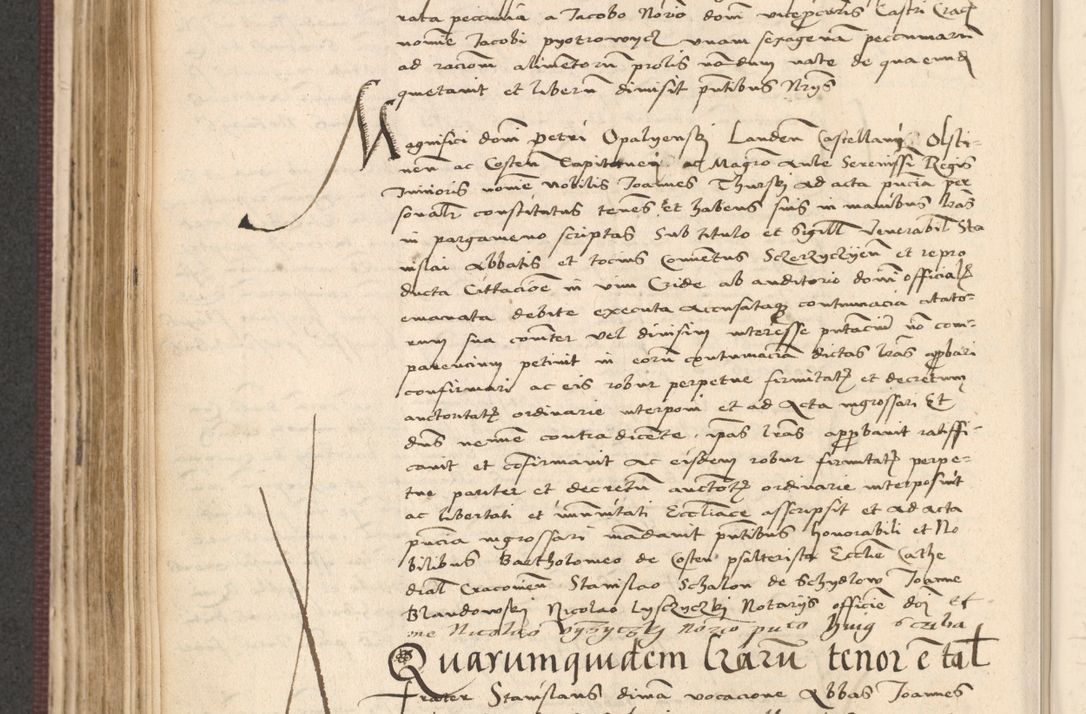 rata peccunia a Jacobo Noro dom viceprcuris Castri Crac
nomie Jacobi pyotrowycz unam sexagenam peccuniarum
ad racom alimentoru prolis nondum nate de qua eund
quietavit et liberu dimisit pntibus Nrys
Magnifici domi Petri Opalyensky Landen Castellani Olsti-
nen ac Costen Capitanei ac Magro Aule Sereniss Regis
Junioris nomie nobilis Joannes Thursky ad acta pncia per
sonalr constitutus tenes et habens suis in manibus lras
in pargameno scriptas Sub titulo et sigill venerabil Sta
nislai Abbatis et tocius Conventus Sczerzyczyen et repro
ducta Cittacioe in vim Cride ab auditorio domi officialz
emanata debite executa accusataqz contumacia citato-
rum sua comiter vel divisim interesse putaciu no com-
parencium petivit in eoru contumacia dictas lras approbari
confirmari ac eis robur perpetue firmitatz et decretum
auctoritatz ordinarie interponi et ad Acta ingrossari Et
dns nemine contradicente ipas lras approbavit ratiffi-
cavit et cofirmavit ac eisdem robur firmitatz perpe-
tue pariter et decretu auctotz ordinarie interposuit
ac libertati et imunitati Eccliace asscripsit et ad acta
pncia ingrossari madavit pntibus honorabili et No
bilibus Bartholomeo de Costen psalterista Ecclie Cathe
dral Cracovien Stanislao Schalon de Schydlow Joanne
Blandowsky Nicolao Lysczyczky Notarys officie doi et
me Nicolao vyzyczky Norio puco huig scriba
Quarumquidem lrarum tenor e tal
frater Stanislaus divina vocacione Abbas Joannes